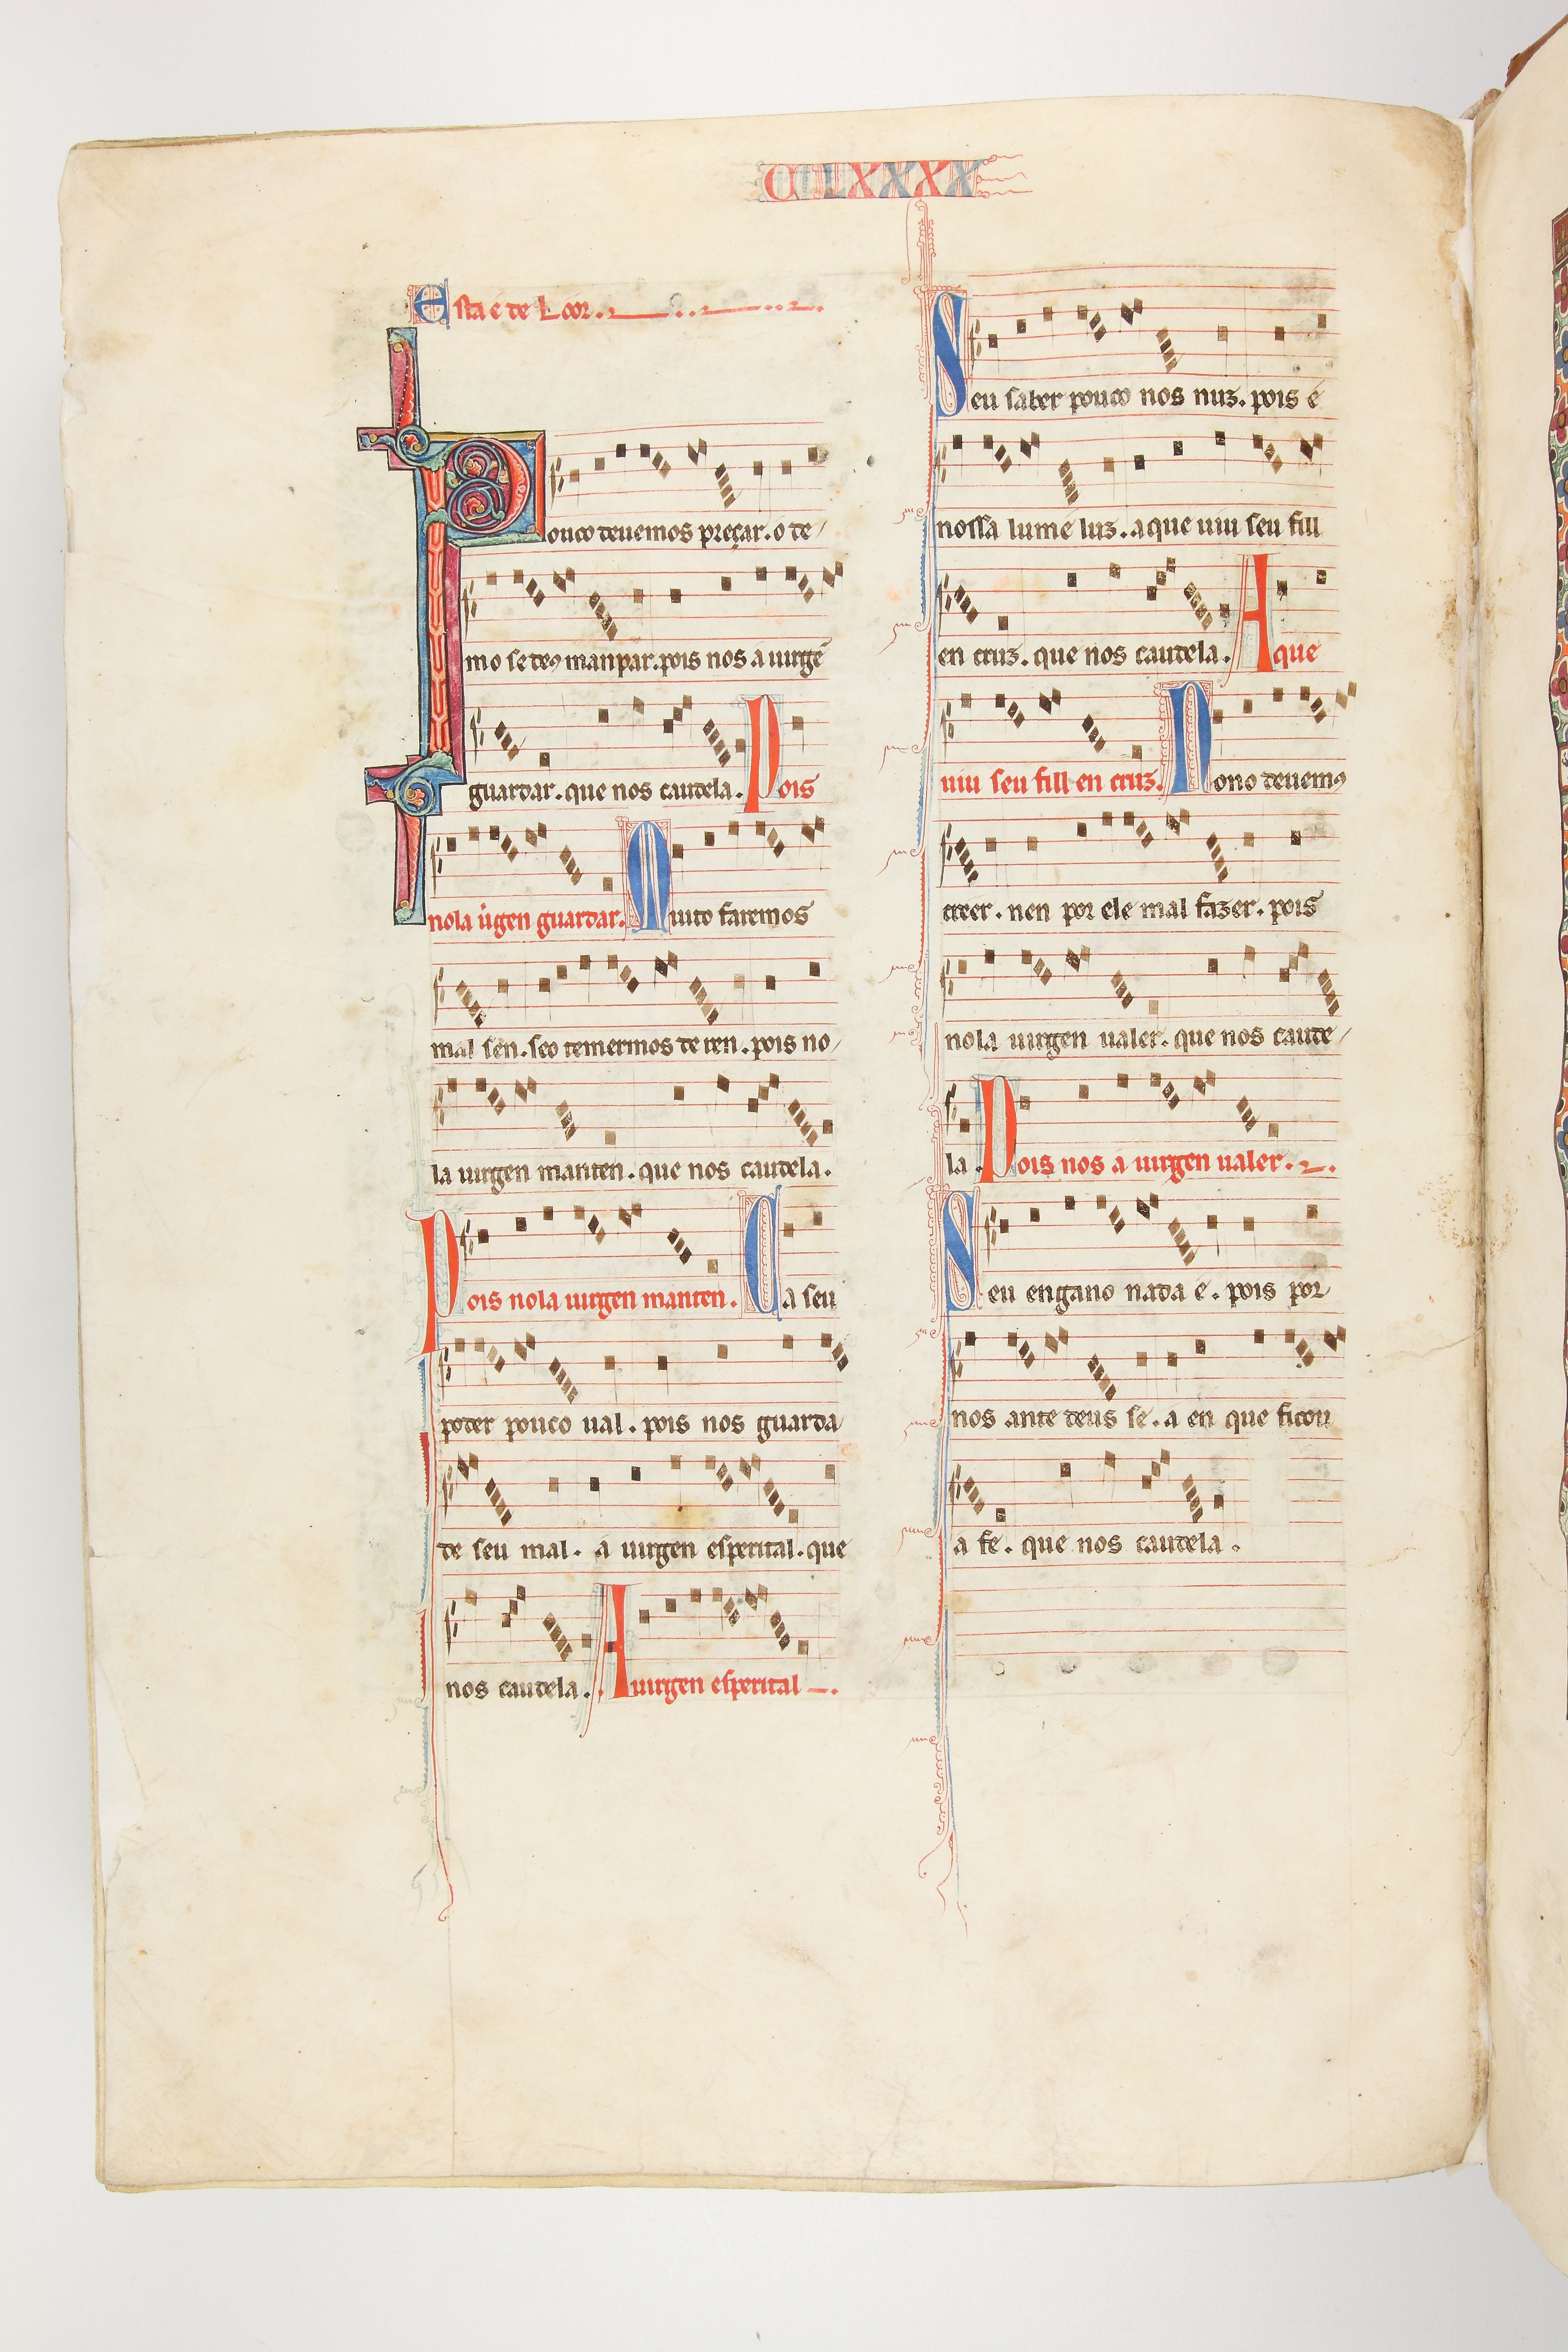 CLXXXX
Esta é de Loor.
Pouco deuemos preçar. o de/
mo se deꝯ manpar. pois nos a uirgẽ
guardar. que nos caudela. Pois
nola uirgen guardar. Muito faremos
mal sen. seo temermos de ren. pois no/
la uirgen manten. que nos caudela.
Pois nola uirgen manten. Ca seu
poder pouco ual. pois nos guarda
de seu mal. a uirgen esperital. que
nos caudela. A uirgen esperital
Seu saber pouco nos nuz. pois é
nossa lume luz. a que uiu seu fill
en cruz. que nos caudela. A que
uiu seu fill en cruz. Nono deuemꝯ
creer. nen por ele mal fazer. pois
nola uirgen ualer. que nos caude/
la. Pois nos a uirgen ualer.
Seu engano nada é. pois por
nos ante deus sé. a en que ficou
a fe. que nos caudela.